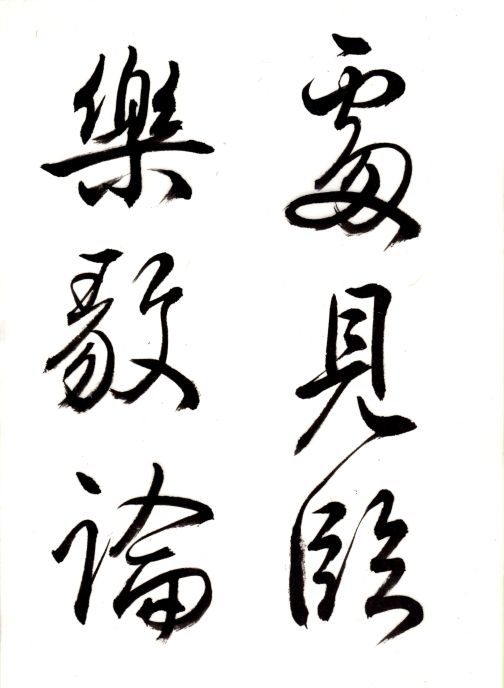 處見臨
樂毅論